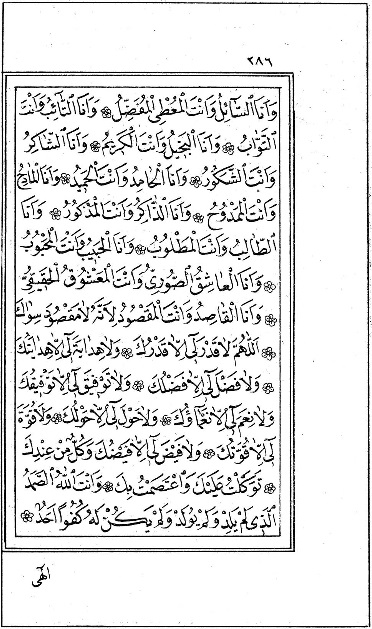 ٢٨٦
وَاَنَا السَّآئِلُ وَاَنْتَ الْمُعْطِى الْمُفَضِّلُ ۞ وَاَنَا التَّآئِبُ وَاَنْتَ
التَّوَّابُ ۞ وَاَنَا الْبَخِيلُ وَاَنْتَ الْكَرِيمُ ۞ وَاَنَا الشَّاكِرُ
وَاَنْتَ الشَّكُورُ ۞ وَاَنَا الْحَامِدُ وَاَنْتَ الْحَمِيدُ ۞ وَاَنَا الْمَادِحُ
وَاَنْتَ الْمَمْدُوحُ ۞ وَاَنَا الذَّاكِرُ وَاَنْتَ الْمَذْكُورُ ۞ وَاَنَا
الطَّالِبُ وَاَنْتَ الْمَطْلُوبُ ۞ وَاَنَا الْحَبِيبُ وَاَنْتَ الْمَحْبُوبُ
۞ وَاَنَا الْعَاشِقُ الصُّورِىُّ وَاَنْتَ الْمَعْشُوقُ الْحَقِيقِىُّ
۞ وَاَنَا الْقَاصِدُ وَاَنْتَ الْمَقْصُودُ لِاَنَّهُ لَا مَقْصُودَ سِوَاكَ
۞ اَللّٰهُمَّ لَا قَدْرَ لِى اِلَّا قَدْرُكَ ۞ وَلَا هِدَايَةَ لِى اِلَّا هِدَايَتُكَ
۞ وَلَا فَضْلَ لِى اِلَّا فَضْلُكَ ۞ وَلَا تَوْفِيقَ لِى اِلَّا تَوْفِيقُكَ
وَلَا نِعَمَ لِى اِلَّا نَعْمَاؤُكَ ۞ وَلَا حَوْلَ لِى اِلَّا حَوْلُكَ ۞ وَلَا قُوَّةَ
لِى اِلَّا قُوَّتُكَ ۞ وَلَا فَيْضَ لِى اِلَّا فَيْضُكَ وَكُلٌّ مِنْ عِنْدِكَ
۞ تَوَكَّلْتُ عَلَيْكَ وَاعْتَصَمْتُ بِكَ ۞ وَاَنْتَ اللّٰهُ الصَّمَدُ
الَّذِى لَمْ يَلِدْ وَلَمْ يُولَدْ وَلَمْ يَكُنْ لَهُ كُفُوًا اَحَدٌ ۞
الٰهى